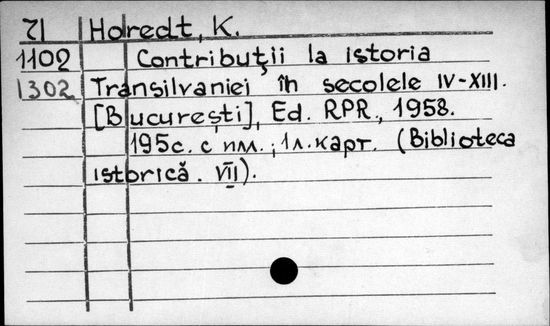 Z1 Horedt, K.
1102 Contribuţii la istoria
1302 Transilvaniei în secolele IV-XIII.
[Bucureşti], Ed. RPR., 1958.
195с. с илл.; 1л. карт. (Biblioteca
istorică. VII).